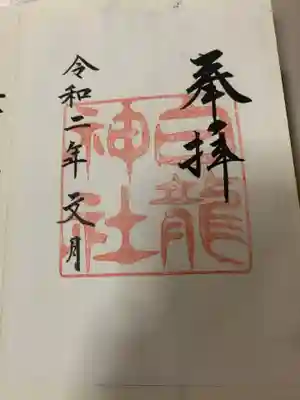 奉拝
白龍
神社
令和二年文月